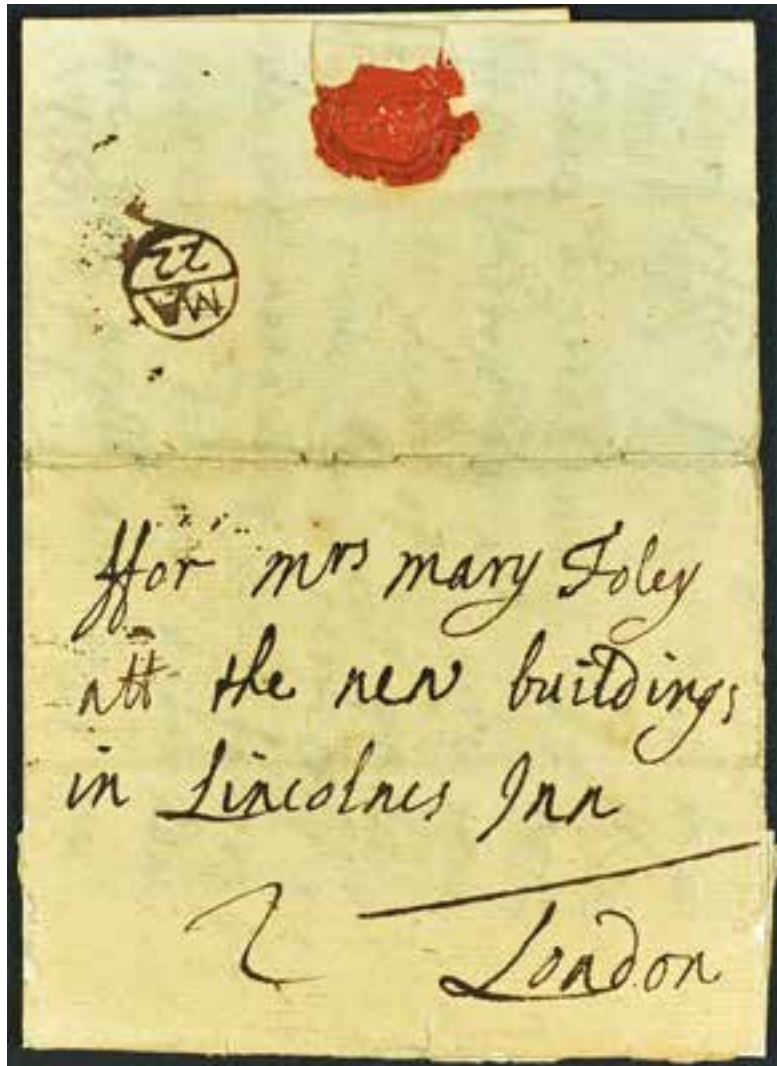 MA
22
ffor mrs mary Foley
att the new buildings
in Lincolnes Inn
2
London